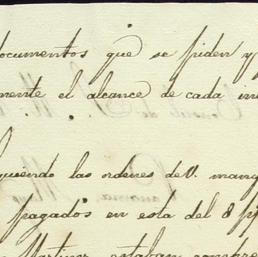 documentos que se piden y
mente el alcance de cada in
siguiendo las ordenes de V. manq
pagados en esta del 8
Martinez estaban nombre